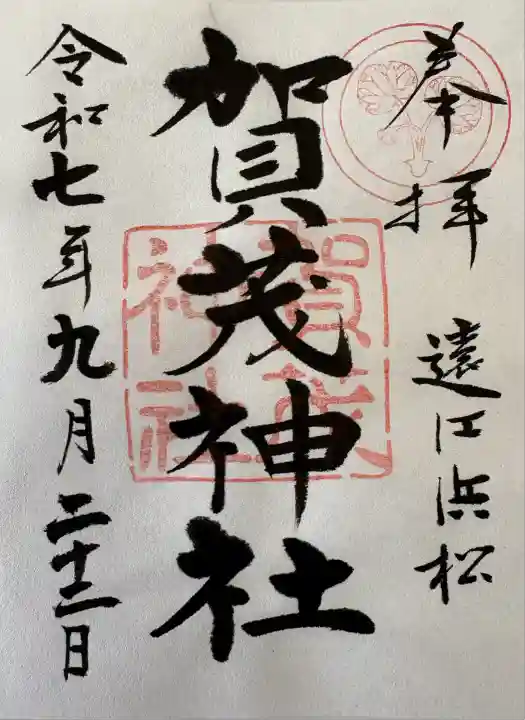 奉拝
遠江浜松
賀茂神社
賀茂神社
令和七年九月二十二日